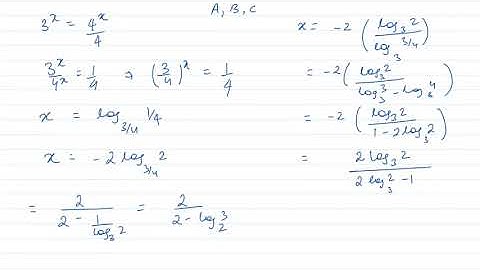 A, B, C
3^x = 4^x/4
3^x/4^x = 1/4 ⇒ (3/4)^x = 1/4
x = log_{3/4} 1/4
x = -2 log_{3/4} 2
x = -2 (log_3 2 / log_3 3/4)
= -2 (log_3 2 / log_3 3 - log_3 4)
= -2 (log_3 2 / 1 - 2 log_3 2)
= 2 log_3 2 / 2 log_3 2 - 1
= 2 / 2 - 1/log_3 2 = 2 / 2 - log_2 3